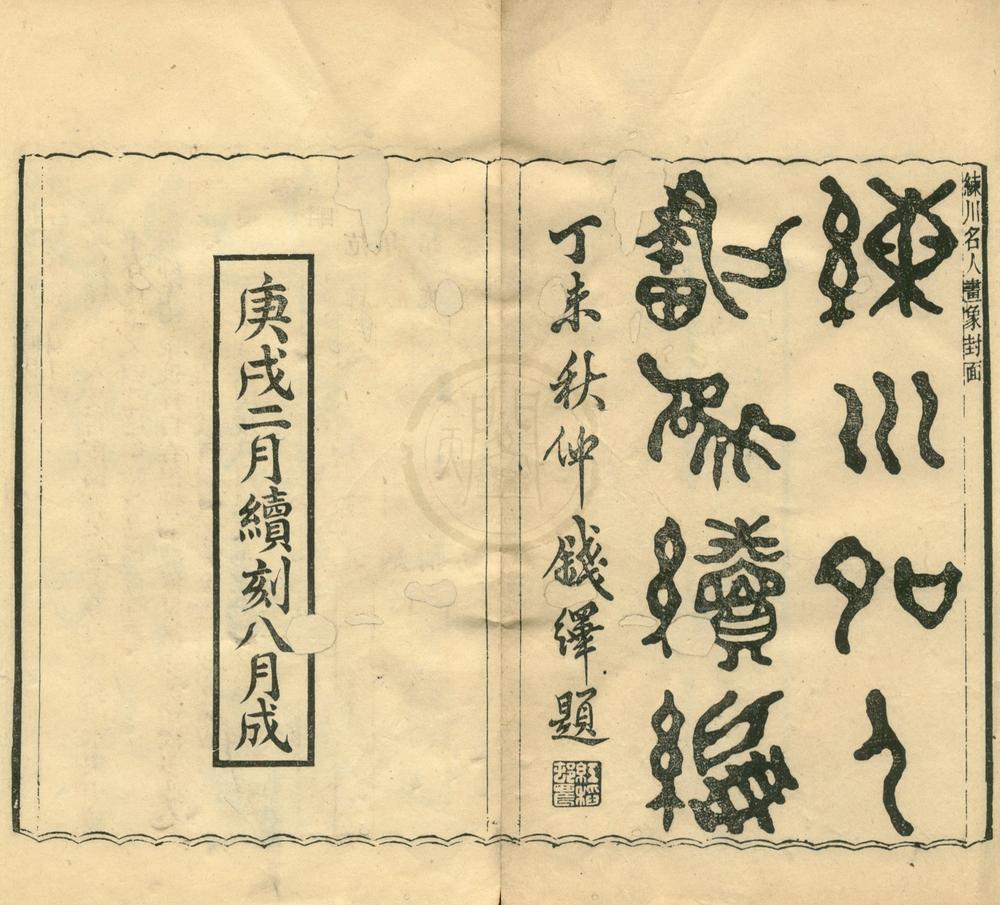 練川名人畫像封面
練川名人
畫像續編
丁未秋仲錢繹題
庚戌二月續刻八月成